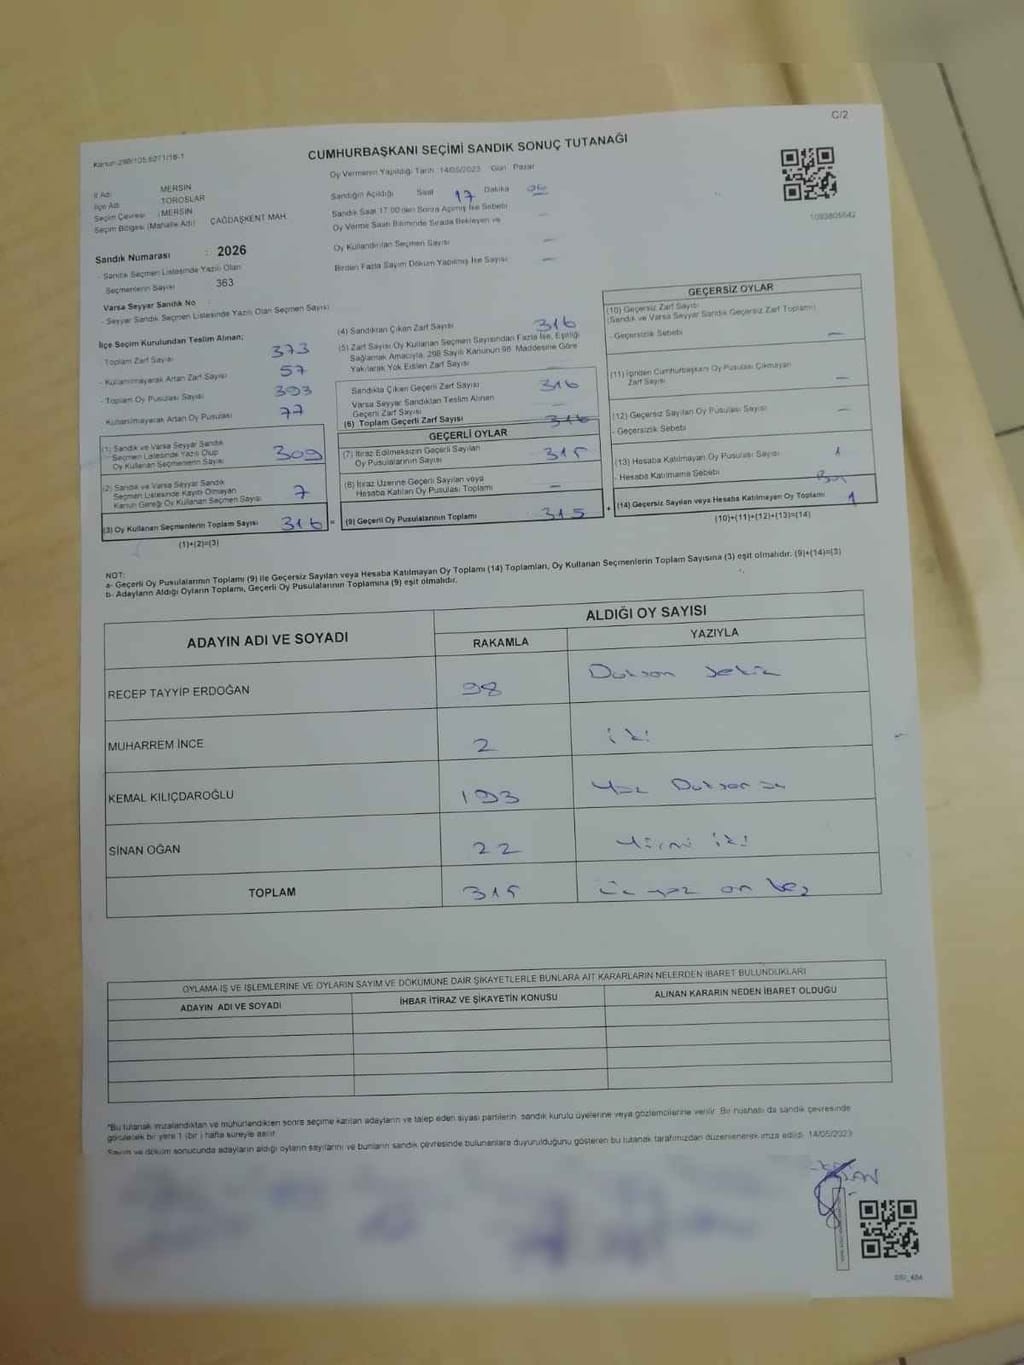 C/2
Kanun:298/105,6271/18-1
CUMHURBAŞKANI SEÇİMİ SANDIK SONUÇ TUTANAĞI
Oy Vermenin Yapıldığı Tarih :14/05/2023 Gün : Pazar
İl Adı : MERSİN
İlçe Adı : TOROSLAR
Seçim Çevresi : MERSİN
Seçim Bölgesi (Mahalle Adı) : ÇAĞDAŞKENT MAH.
Sandık Numarası : 2026
- Sandık Seçmen Listesinde Yazılı Olan
Seçmenlerin Sayısı 363
Varsa Seyyar Sandık No
- Seyyar Sandık Seçmen Listesinde Yazılı Olan Seçmen Sayısı
Sandığın Açıldığı Saat 17 Dakika
Sandık Saat 17:00'den Sonra Açılmış İse Sebebi
Oy Verme Saati Bitiminde Sırada Bekleyen ve
Oy Kullandırılan Seçmen Sayısı
Birden Fazla Sayım Döküm Yapılmış İse Sayısı
1093805642
İlçe Seçim Kurulundan Teslim Alınan;
Toplam Zarf Sayısı 373
- Kullanılmayarak Artan Zarf Sayısı 57
- Toplam Oy Pusulası Sayısı 393
- Kullanılmayarak Artan Oy Pusulası 77
(1) Sandık ve Varsa Seyyar Sandık
Seçmen Listesinde Yazılı Olup
Oy Kullanan Seçmenlerin Sayısı 309
(2) Sandık ve Varsa Seyyar Sandık
Seçmen Listesinde Kayıtlı Olmayan
Kanun Gereği Oy Kullanan Seçmen Sayısı 7
(3) Oy Kullanan Seçmenlerin Toplam Sayısı 316 =
(1)+(2)=(3)
(4) Sandıktan Çıkan Zarf Sayısı 316
(5) Zarf Sayısı Oy Kullanan Seçmen Sayısından Fazla İse, Eşitliği
Sağlamak Amacıyla, 298 Sayılı Kanunun 98. Maddesine Göre
Yakılarak Yok Edilen Zarf Sayısı
Sandıkta Çıkan Geçerli Zarf Sayısı 316
Varsa Seyyar Sandıktan Teslim Alınan
Geçerli Zarf Sayısı
(6) Toplam Geçerli Zarf Sayısı 316
GEÇERLİ OYLAR
(7) İtiraz Edilmeksizin Geçerli Sayılan
Oy Pusulalarının Sayısı 315
(8) İtiraz Üzerine Geçerli Sayılan veya
Hesaba Katılan Oy Pusulası Toplamı
(9) Geçerli Oy Pusulalarının Toplamı 315 +
GEÇERSİZ OYLAR
(10) Geçersiz Zarf Sayısı
(Sandık ve Varsa Seyyar Sandık Geçersiz Zarf Toplamı)
- Geçersizlik Sebebi
(11) İçinden Cumhurbaşkanı Oy Pusulası Çıkmayan
Zarf Sayısı
(12) Geçersiz Sayılan Oy Pusulası Sayısı
- Geçersizlik Sebebi
(13) Hesaba Katılmayan Oy Pusulası Sayısı 1
- Hesaba Katılmama Sebebi
(14) Geçersiz Sayılan veya Hesaba Katılmayan Oy Toplamı 1
(10)+(11)+(12)+(13)=(14)
NOT:
a- Geçerli Oy Pusulalarının Toplamı (9) ile Geçersiz Sayılan veya Hesaba Katılmayan Oy Toplamı (14) Toplamları, Oy Kullanan Seçmenlerin Toplam Sayısına (3) eşit olmalıdır. (9)+(14)=(3)
b- Adayların Aldığı Oyların Toplamı, Geçerli Oy Pusulalarının Toplamına (9) eşit olmalıdır.
ADAYIN ADI VE SOYADI
ALDIĞI OY SAYISI
RAKAMLA YAZIYLA
RECEP TAYYİP ERDOĞAN 98 Doksan sekiz
MUHARREM İNCE 2 iki
KEMAL KILIÇDAROĞLU 193 Yüz Doksan üç
SİNAN OĞAN 22 Yirmi iki
TOPLAM 315 üç yüz on beş
OYLAMA İŞ VE İŞLEMLERİNE VE OYLARIN SAYIM VE DÖKÜMÜNE DAİR ŞİKAYETLERLE BUNLARA AİT KARARLARIN NELERDEN İBARET BULUNDUKLARI
ADAYIN ADI VE SOYADI İHBAR İTİRAZ VE ŞİKAYETİN KONUSU ALINAN KARARIN NEDEN İBARET OLDUĞU
*Bu tutanak imzalandıktan ve mühürlendikten sonra seçime katılan adayların ve talep eden siyasi partilerin, sandık kurulu üyelerine veya gözlemcilerine verilir. Bir nüshası da sandık çevresinde
görülebilecek bir yere 1 (bir) hafta süreyle asılır.
Sayım ve döküm sonucunda adayların aldığı oyların sayılarını ve bunların sandık çevresinde bulunanlara duyurulduğunu gösteren bu tutanak tarafımızdan düzenlenerek imza edildi. 14/05/2023